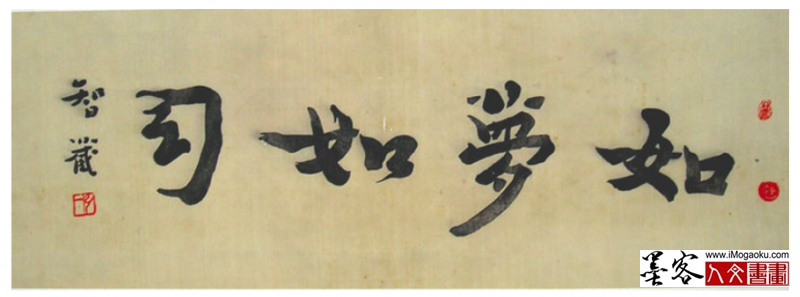 如夢如幻
智藏
墨客
www.iMogaoku.com
人文書畫